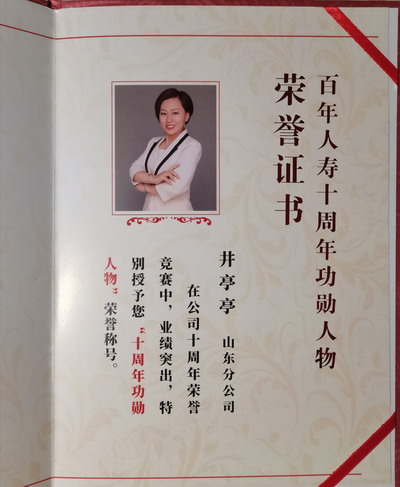 百年人寿十周年功勋人物
荣誉证书
井亭亭 山东分公司
在公司十周年荣誉
竞赛中，业绩突出，特
别授予您“十周年功勋
人物”荣誉称号。